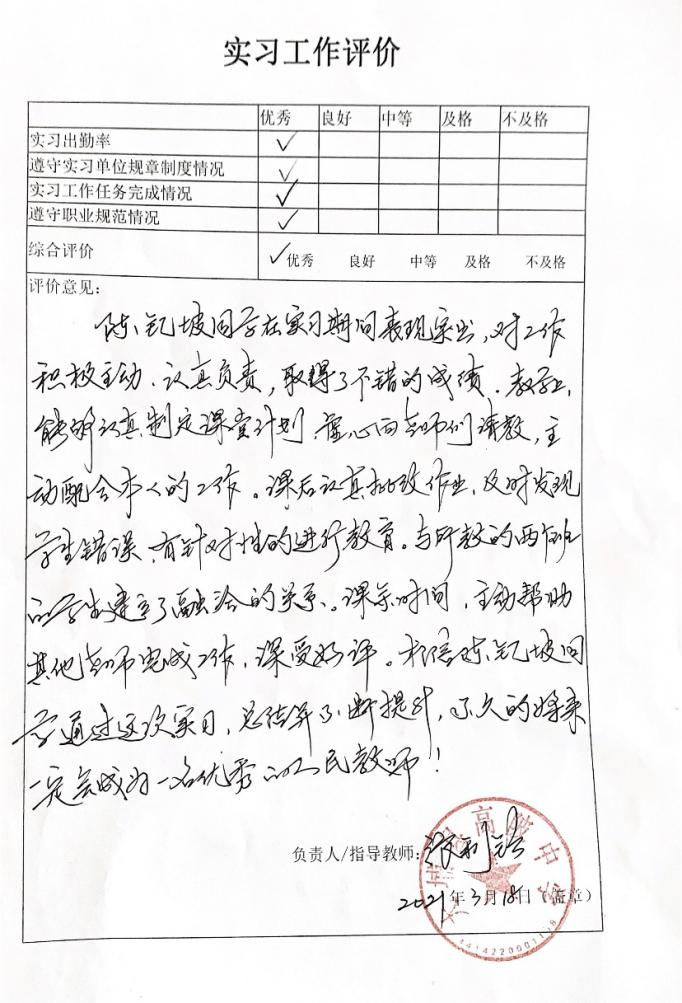 实习工作评价
优秀 良好 中等 及格 不及格
实习出勤率 ✓
遵守实习单位规章制度情况 ✓
实习工作任务完成情况 ✓
遵守职业规范情况 ✓
综合评价 ✓优秀 良好 中等 及格 不及格
评价意见：
陈钇坡同学在实习期间表现突出，对工作
积极主动、认真负责，取得了不错的成绩。教学上，
能够认真制定课堂计划，虚心向老师们请教，主
动配合本人的工作。课后认真批改作业，及时发现
学生错误，有针对性的进行教育。与所教的两个班
的学生建立了融洽的关系。课余时间，主动帮助
其他老师完成工作，深受好评。相信陈钇坡同
学通过这次实习，总结并不断提升，不久的将来
一定会成为一名优秀的人民教师！
负责人/指导教师：
2021年3月18日（盖章）
高级中学
1414220001118